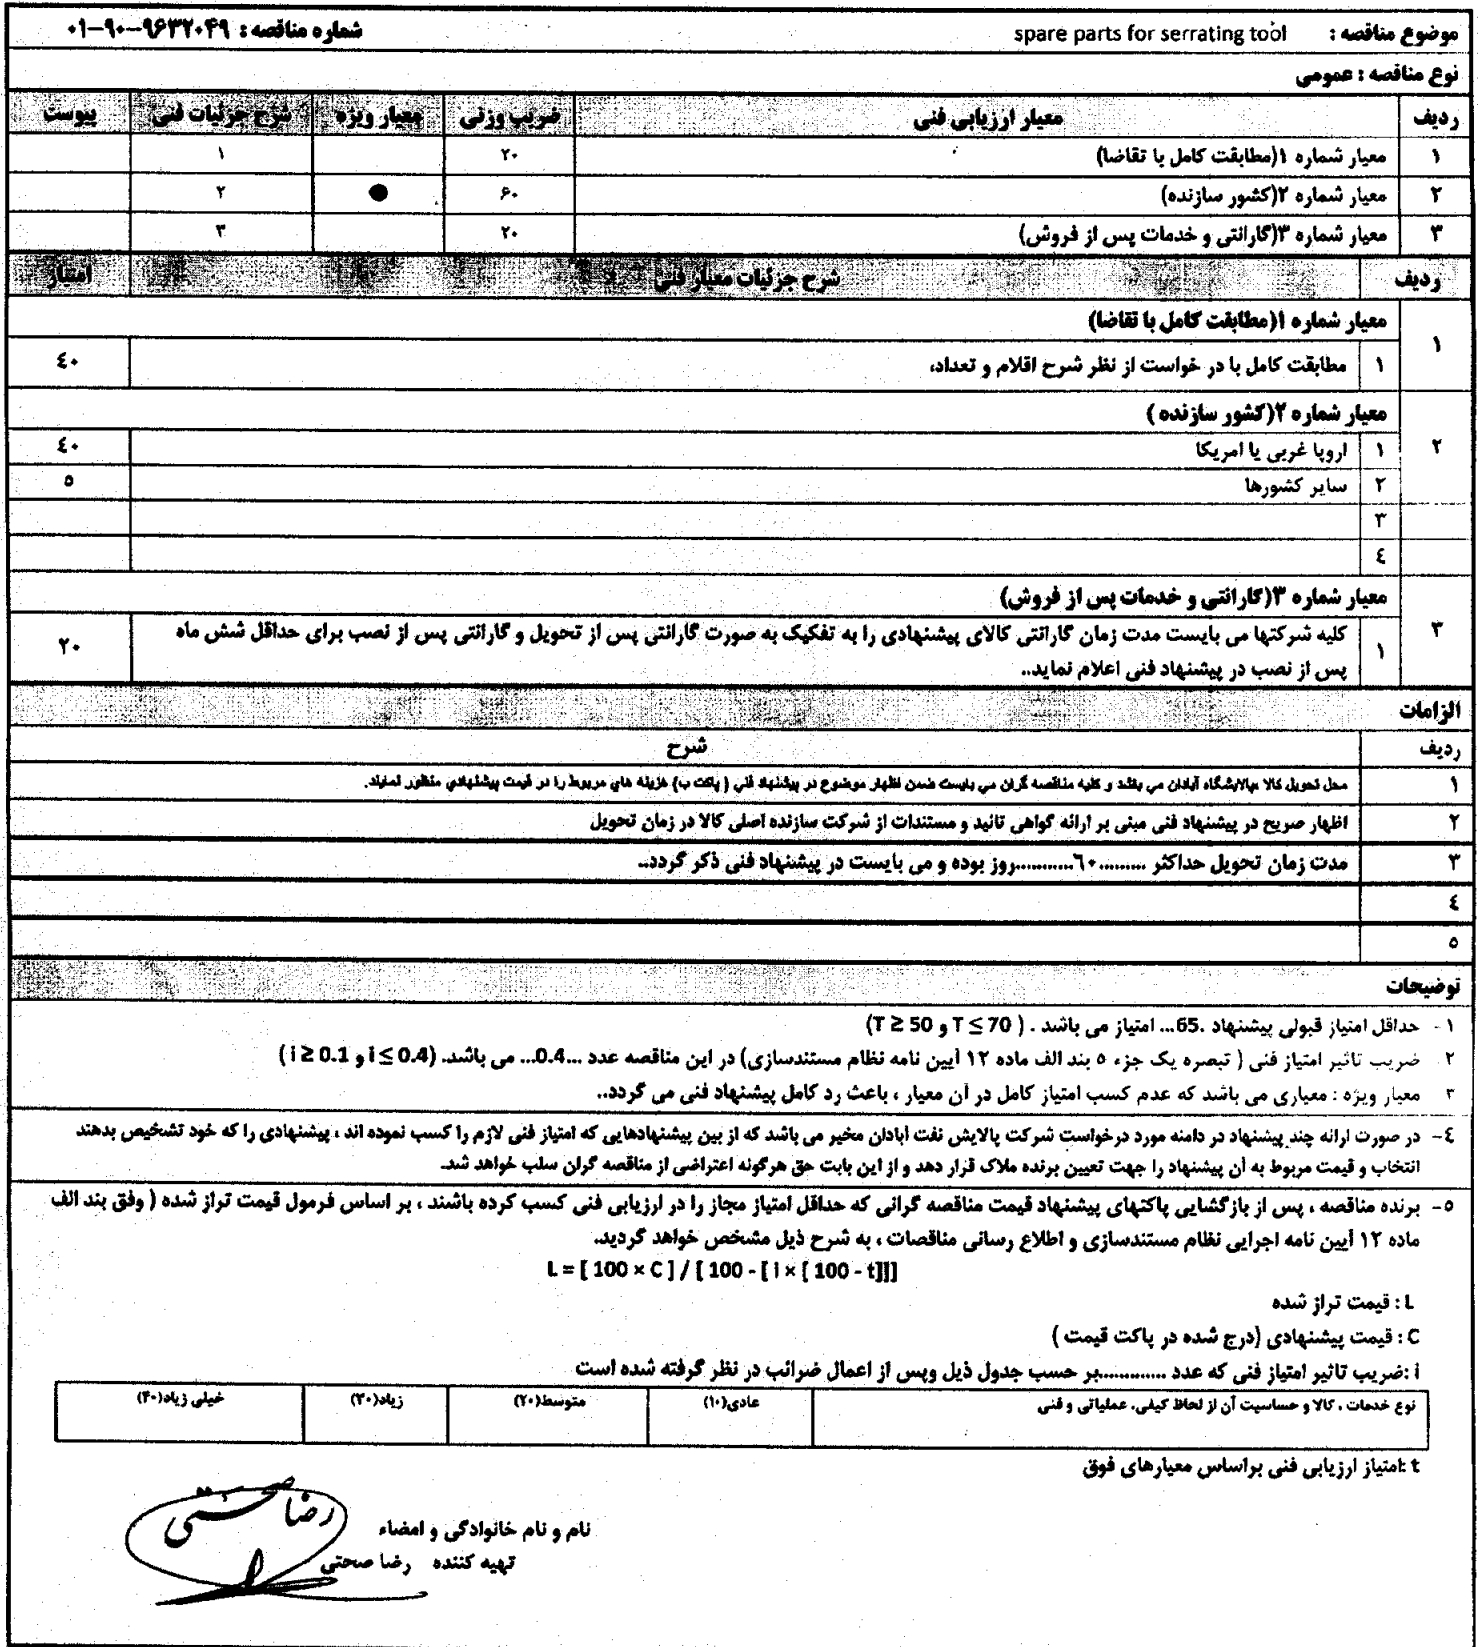 موضوع مناقصه : spare parts for serrating tool شماره مناقصه : ۰۱-۹۰-۹۶۳۲۰۴۹
نوع مناقصه : عمومی
ردیف معیار ارزیابی فنی ضریب وزنی معیار ویژه شرح جزئیات فنی پیوست
۱ معیار شماره ۱(مطابقت کامل با تقاضا) ۲۰ ۱
۲ معیار شماره ۲(کشور سازنده) ۶۰ ● ۲
۳ معیار شماره ۳(گارانتی و خدمات پس از فروش) ۲۰ ۳
ردیف شرح جزئیات معیار فنی امتیاز
۱ معیار شماره ۱(مطابقت کامل با تقاضا)
۱ مطابقت کامل با در خواست از نظر شرح اقلام و تعداد، ٤۰
۲ معیار شماره ۲(کشور سازنده )
۱ اروپا غربی یا امریکا ٤۰
۲ سایر کشورها ٥
۳
٤
۳ معیار شماره ۳(گارانتی و خدمات پس از فروش)
۱ کلیه شرکتها می بایست مدت زمان گارانتی کالای پیشنهادی را به تفکیک به صورت گارانتی پس از تحویل و گارانتی پس از نصب برای حداقل شش ماه ۲۰
پس از نصب در پیشنهاد فنی اعلام نماید..
الزامات
ردیف شرح
۱ محل تحویل کالا ،پالایشگاه آبادان می باشد و کلیه مناقصه گران می بایست ضمن اظهار موضوع در پیشنهاد فنی ( پاکت ب) هزینه های مربوط را در قیمت پیشنهادی منظور نمایند.
۲ اظهار صریح در پیشنهاد فنی مبنی بر ارائه گواهی تائید و مستندات از شرکت سازنده اصلی کالا در زمان تحویل
۳ مدت زمان تحویل حداکثر .........٦۰...........روز بوده و می بایست در پیشنهاد فنی ذکر گردد..
٤
٥
توضیحات
۱- حداقل امتیاز قبولی پیشنهاد .65... امتیاز می باشد . ( T ≤ 70 و T ≥ 50)
۲ ضریب تاثیر امتیاز فنی ( تبصره یک جزء ٥ بند الف ماده ۱۲ آیین نامه نظام مستندسازی) در این مناقصه عدد ...0.4... می باشد. (i ≤ 0.4 و i ≥ 0.1 )
۳ معیار ویژه : معیاری می باشد که عدم کسب امتیاز کامل در آن معیار ، باعث رد کامل پیشنهاد فنی می گردد..
٤- در صورت ارائه چند پیشنهاد در دامنه مورد درخواست شرکت پالایش نفت آبادان مخیر می باشد که از بین پیشنهادهایی که امتیاز فنی لازم را کسب نموده اند ، پیشنهادی را که خود تشخیص بدهند
انتخاب و قیمت مربوط به آن پیشنهاد را جهت تعیین برنده ملاک قرار دهد و از این بابت حق هرگونه اعتراضی از مناقصه گران سلب خواهد شد.
٥- برنده مناقصه ، پس از بازگشایی پاکتهای پیشنهاد قیمت مناقصه گرانی که حداقل امتیاز مجاز را در ارزیابی فنی کسب کرده باشند ، بر اساس فرمول قیمت تراز شده ( وفق بند الف
ماده ۱۲ آیین نامه اجرایی نظام مستندسازی و اطلاع رسانی مناقصات ، به شرح ذیل مشخص خواهد گردید.
L = [ 100 × C ] / [ 100 - [ i × [ 100 - t]]]
L : قیمت تراز شده
C : قیمت پیشنهادی (درج شده در پاکت قیمت )
i :ضریب تاثیر امتیاز فنی که عدد .............بر حسب جدول ذیل وپس از اعمال ضرائب در نظر گرفته شده است
نوع خدمات ، کالا و حساسیت آن از لحاظ کیفی، عملیاتی و فنی عادی(۱۰) متوسط(۲۰) زیاد(۳۰) خیلی زیاد(۴۰)
t :امتیاز ارزیابی فنی براساس معیارهای فوق
نام و نام خانوادگی و امضاء
تهیه کننده رضا صحتی
رضا صحتی